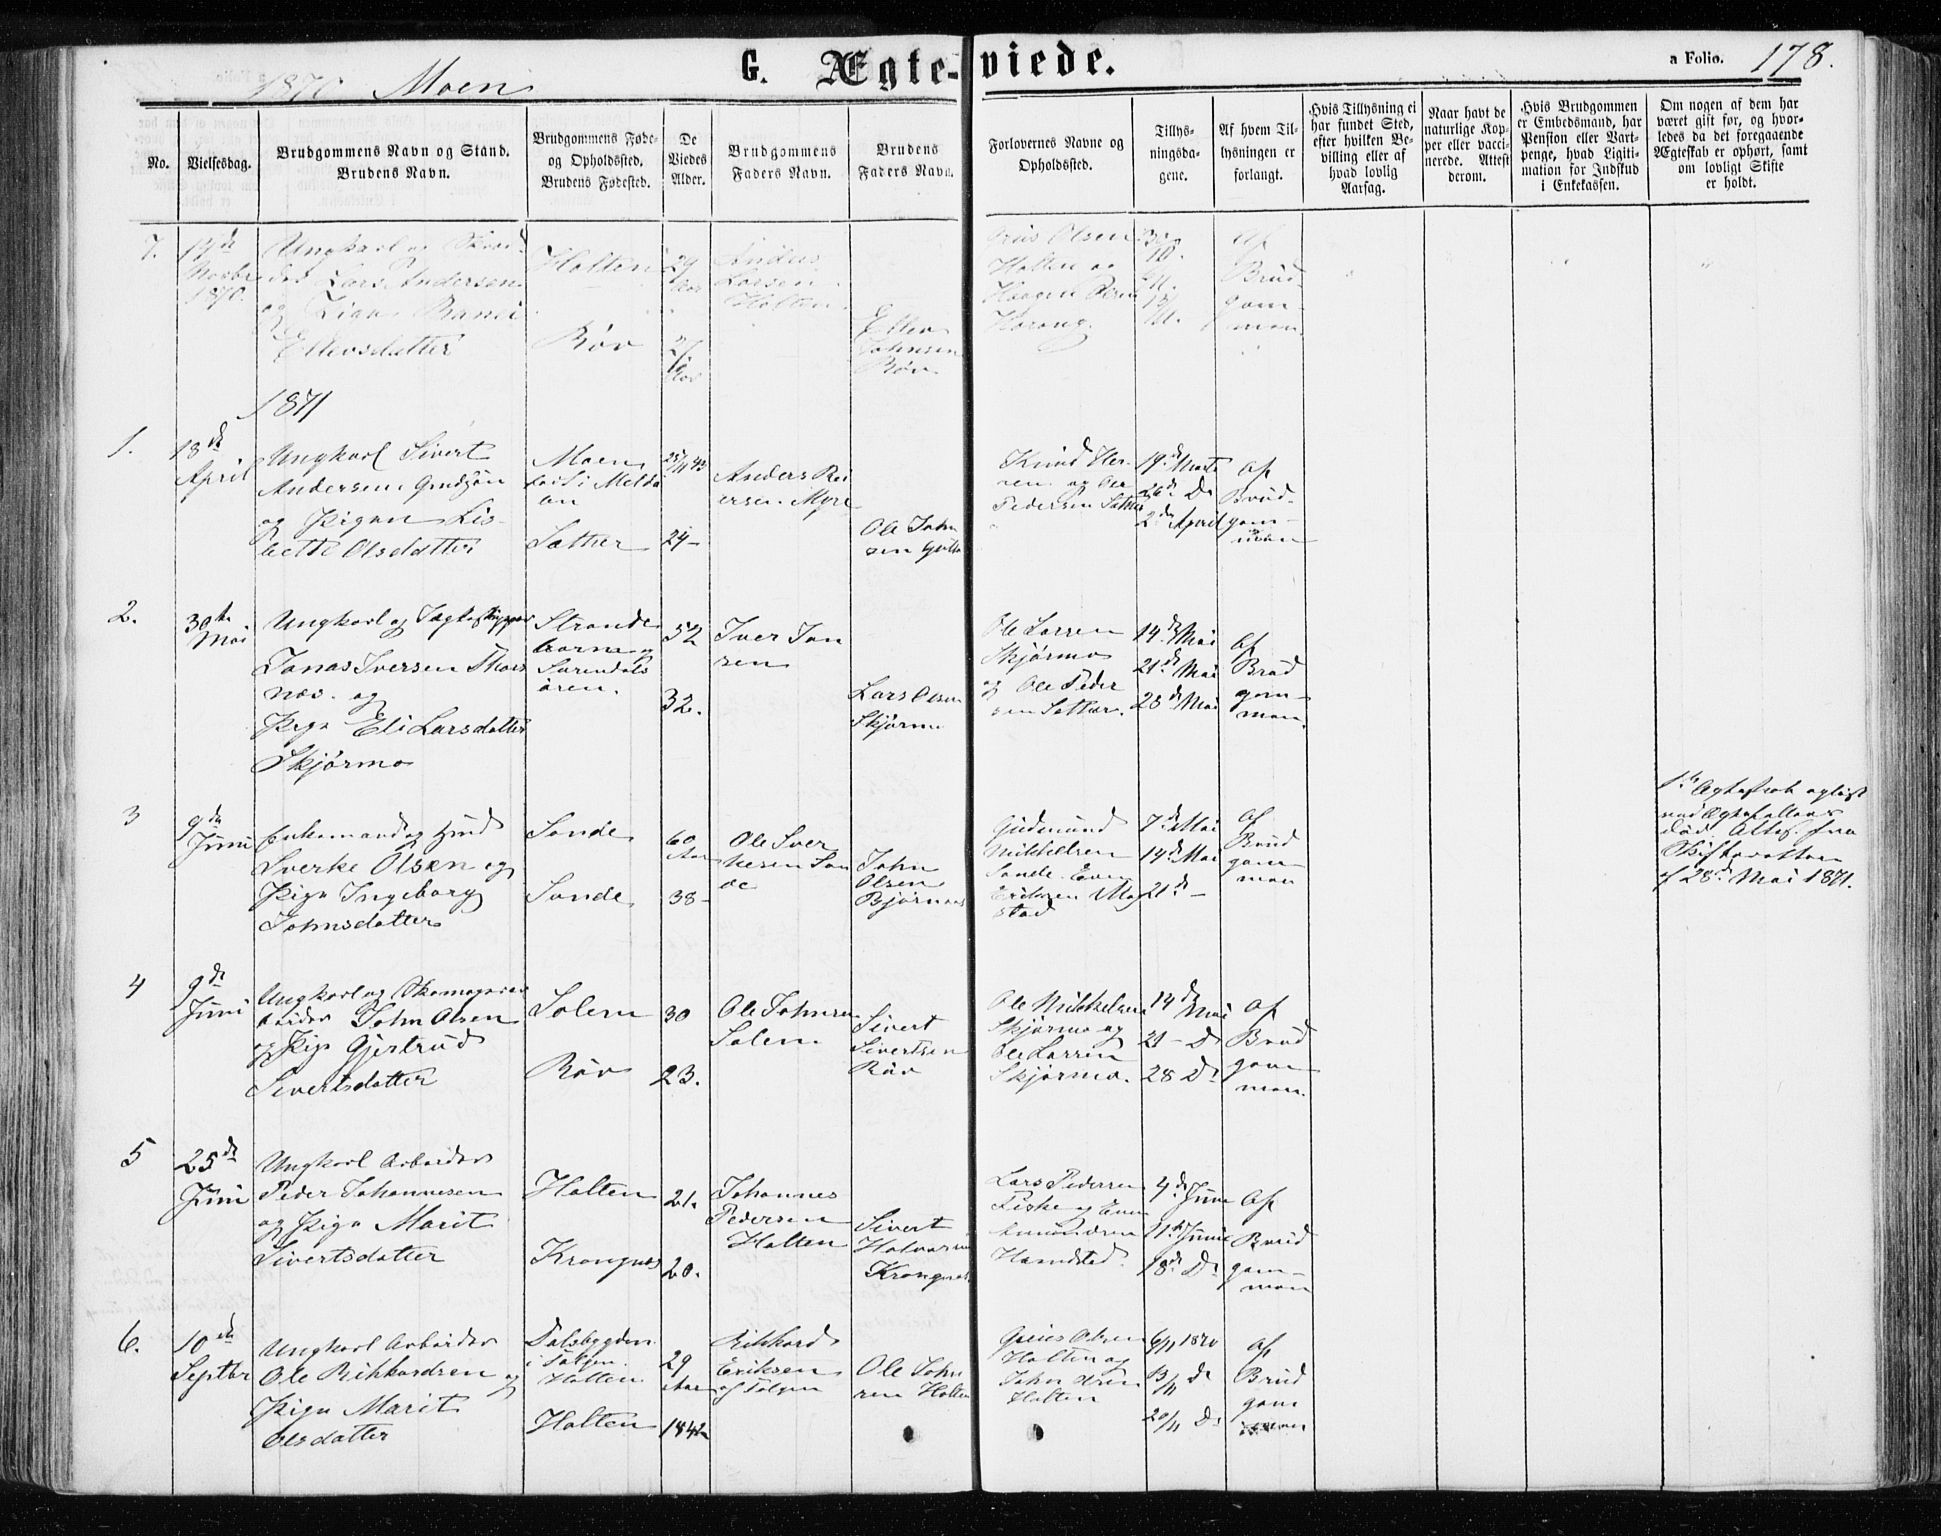 1870 Moen
G. Ægte-viede.
a Folio. 178.
No.
Vielsesdag.
Brudgommens Navn og Stand.
Brudens Navn.
Brudgommens Føde-
og Opholdssted.
Brudens Fødested.
De
Viedes
Alder.
Brudgommens
Faders Navn.
Brudens
Faders Navn.
Forlovernes Navne og
Opholdssted.
Tillys-
ningsda-
gene.
Af hvem Til-
lysningen er
forlangt.
Hvis Tillysning ei
har fundet Sted,
efter hvilken Be-
villing eller af
hvad lovlig
Aarsag.
Naar havt de
naturlige Kop-
per eller vacci-
nerede. Attest
derom.
Hvis Brudgommen
er Embedsmand, har
Pension eller Vart-
penge, hvad Ligiti-
mation for Indskud
i Enkekassen.
Om nogen af dem har
været gift før, og hvor-
ledes da det foregaaende
Ægteskab er ophørt, samt
om lovligt Skifte
er holdt.
7.
Novbr
1870.
Ungkarl og
Lars Andersen
og
Ellevsdatter
Holten
Røv
29
27
Anders
Larsen
Holten
Ellev
Johnsen
Røv
Olsen
Holten og
af
Brud-
gom-
men.
1871
1.
18de
April
Ungkarl Sivert
Andersen
og Pigen Lis-
beth Olsdatter
Moen
Sæther
24-
Anders
ersen Myre
Ole John
sen
Knud
og Ole
Pedersen Sæther
19de Marts
26de Do
2den April
af
Brud-
gom-
men
2.
30te
Mai
Ungkarl og Jægteskipper
Jonas Iversen Thors
næs. og
Pige Eli Larsdatter
Skjørmo
Strande
barm og
Surendals
øren.
52
32.
Iver Jon
sen
Lars Olsen
Skjørmo
Ole Larsen
Skjørmo
og Ole Peder
sen Sæther.
14de Mai
21de Mai
28de Mai
af
Brud
gom-
men.
3
9de
Juni
Enkemand og
Sverke Olsen og
Pige Ingeborg
Johnsdatter
Sande
Sande
60
Aar
38-
Ole Sver
kesen San
de
John
Olsen
Bjørnaas
Gudmund
Mikkelsen
Sande. Even
Eriksen Mog
stad
7de Mai
14de Mai
21de -
af
Brud
gom-
men
1ste Ægteskab opløst
ved Ægtefællens
Død. Attest fra
Skifteretten
af 28de Mai 1871.
4
9de
Juni
Ungkarl og Skomager
John Olsen
og Pige Gjertrud
Sivertsdatter
Solem
Røv
30
23.
Ole Johnsen
Solem
Sivert
Sivertsen
Røv
Ole Mikkelsen
Skjørmo og
Ole Larsen
Skjørmo.
14de Mai
21 - Do
28 Do
af
Brud
gom-
men.
5
25de
Juni
Ungkarl Arbeider
Peder Johannesen
og Pige Marit
Sivertsdatter
Holten
Krongnæs
21.
20.
Johannes
Pedersen
Holten
Sivert
Halvorsen
Krongnæs
Lars Pedersen
Fiske og Even
Amundsen
Harstad.
4de Juni
11te Juni
18de Do
af
Brud
gom-
men
6.
10de
Septbr
Ungkarl Arbeider
Ole Rikkardsen og
Pige Marit
Olsdatter
Dalsbygden
i Tolgen.
Holten
Holten
29
Aar
1842
Rikkard
Eriksen
af Tolgen
Ole John
sen Holten
Olsen
Holten og
John Olsen
Holten
6/11 1870
13/11 Do
20/11 Do
af
Brud
gom
men